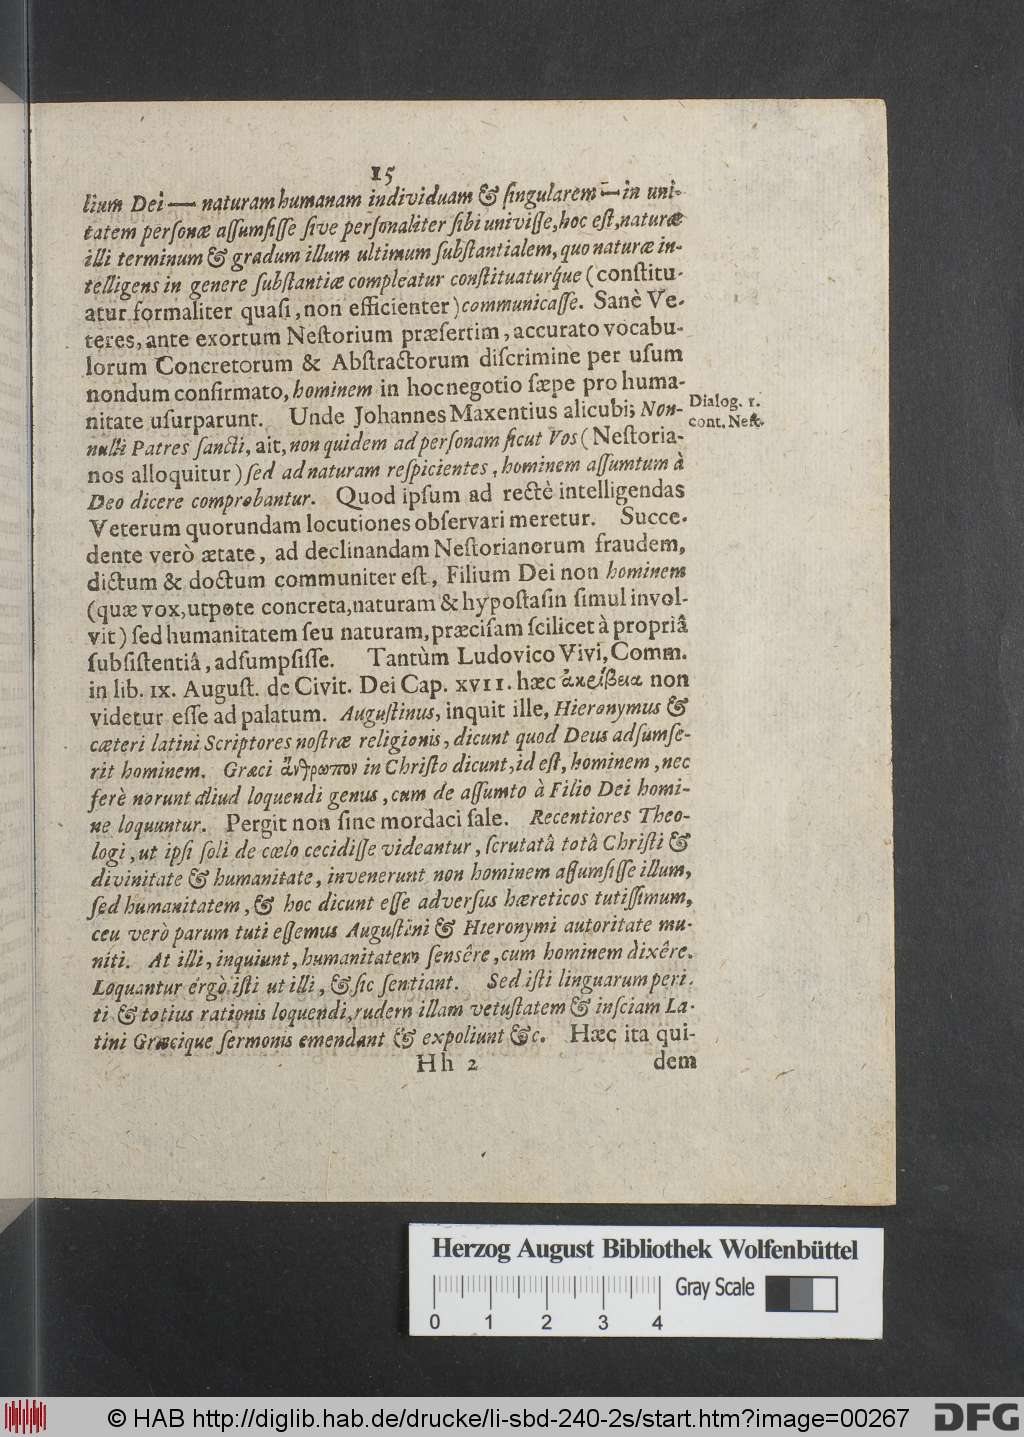 15
lium Dei — naturam humanam individuam & ſingularem — in uni-
tatem perſonæ aſſumſiſſe ſive perſonaliter ſibi univiſſe, hoc eſt, naturæ
illi terminum & gradum illum ultimum ſubſtantialem, quo naturæ in-
telligens in genere ſubſtantiæ compleatur conſtituaturq́ue (conſtitu-
atur formaliter quaſi, non efficienter) communicaſſe. Sanè Ve-
teres, ante exortum Neſtorium præſertim, accurato vocabu-
lorum Concretorum & Abſtractorum diſcrimine per uſum
nondum confirmato, hominem in hoc negotio ſæpe pro huma-
nitate uſurparunt. Unde Johannes Maxentius alicubi; Non-
Dialog. 1.
cont. Neſt.
nulli Patres ſancti, ait, non quidem ad perſonam ſicut Vos (Neſtoria-
nos alloquitur) ſed ad naturam reſpicientes, hominem aſſumtum à
Deo dicere comprobantur. Quod ipſum ad rectè intelligendas
Veterum quorundam locutiones obſervari meretur. Succe-
dente verò ætate, ad declinandam Neſtorianorum fraudem,
dictum & doctum communiter eſt, Filium Dei non hominem
(quæ vox, utpote concreta, naturam & hypoſtaſin ſimul invol-
vit) ſed humanitatem ſeu naturam, præciſam ſcilicet à propriâ
ſubſiſtentiâ, adſumpſiſſe. Tantùm Ludovico Vivi, Comm.
in lib. IX. Auguſt. de Civit. Dei Cap. XVII. hæc ἀκρίβεια non
videtur eſſe ad palatum. Auguſtinus, inquit ille, Hieronymus &
cæteri latini Scriptores noſtræ religionis, dicunt quod Deus adſumſe-
rit hominem. Græci ἄνθρωπον in Chriſto dicunt, id eſt, hominem, nec
ferè norunt aliud loquendi genus, cum de aſſumto à Filio Dei homi-
ne loquuntur. Pergit non ſine mordaci ſale. Recentiores Theo-
logi, ut ipſi ſoli de cœlo cecidiſſe videantur, ſcrutatâ totâ Chriſti &
divinitate & humanitate, invenerunt non hominem aſſumſiſſe illum,
ſed humanitatem, & hoc dicunt eſſe adverſus hæreticos tutiſſimum,
ceu verò parum tuti eſſemus Auguſtini & Hieronymi autoritate mu-
niti. At illi, inquiunt, humanitatem ſensêre, cum hominem dixêre.
Loquantur érgò iſti ut illi, & ſic ſentiant. Sed iſti linguarum peri-
ti & totius rationis loquendi, rudem illam vetuſtatem & inſciam La-
tini Græcique ſermonis emendant & expoliunt &c. Hæc ita qui-
Hh 2
dem
Herzog August Bibliothek Wolfenbüttel
0 1 2 3 4
Gray Scale
© HAB http://diglib.hab.de/drucke/li-sbd-240-2s/start.htm?image=00267
DFG